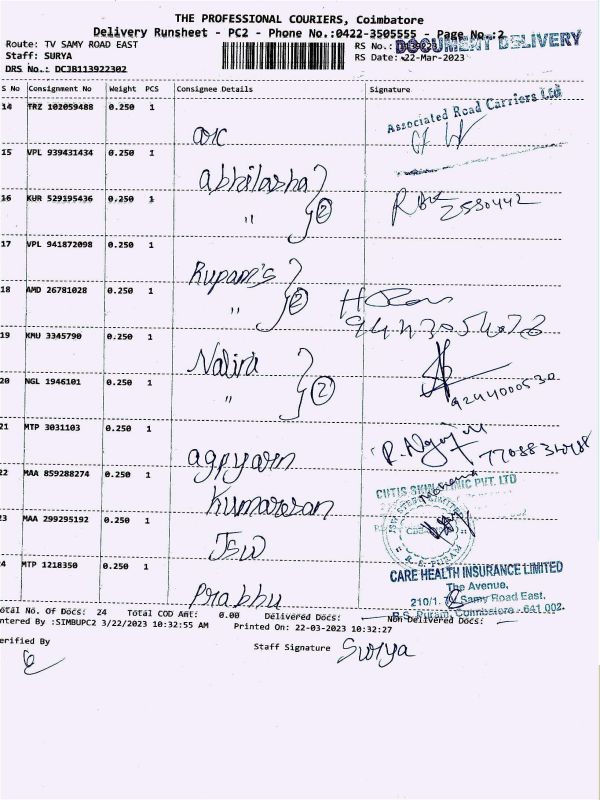 THE PROFESSIONAL COURIERS, Coimbatore
Delivery Runsheet - PC2 - Phone No.:0422-3505555 - Page No.:2
Route: TV SAMY ROAD EAST
RS No.:
DOCUMENT DELIVERY
Staff: SURYA
RS Date: 22-Mar-2023
DRS No.: DCJB113922302
S No Consignment No Weight PCS Consignee Details Signature
14 TRZ 102059488 0.250 1
Associated Road Carriers Ltd
arc
15 VPL 939431434 0.250 1
abhilasha
16 KUR 529195436 0.250 1
" 2
2550442
17 VPL 941872098 0.250 1
Rupam's
18 AMD 26781028 0.250 1
" 2
19 KMU 3345790 0.250 1
Nalira
20 NGL 1946101 0.250 1
" 2
9244000530
21 MTP 3031103 0.250 1
agpyarn
22 MAA 859288274 0.250 1
CUTIS SKIN CLINIC PVT. LTD
Kumaresan
23 MAA 299295192 0.250 1
JSW STEEL LIMITED
R. S. PURAM
JSW
24 MTP 1218350 0.250 1
CARE HEALTH INSURANCE LIMITED
The Avenue,
Prabhu
Samy Road East,
R.S. Puram, Coimbatore - 641 002.
Total No. Of Docs: 24 Total COD Amt: 0.00 Delivered Docs: Non Delivered Docs:
Entered By :SIMBUPC2 3/22/2023 10:32:55 AM Printed On: 22-03-2023 10:32:27
Verified By
Staff Signature Surya